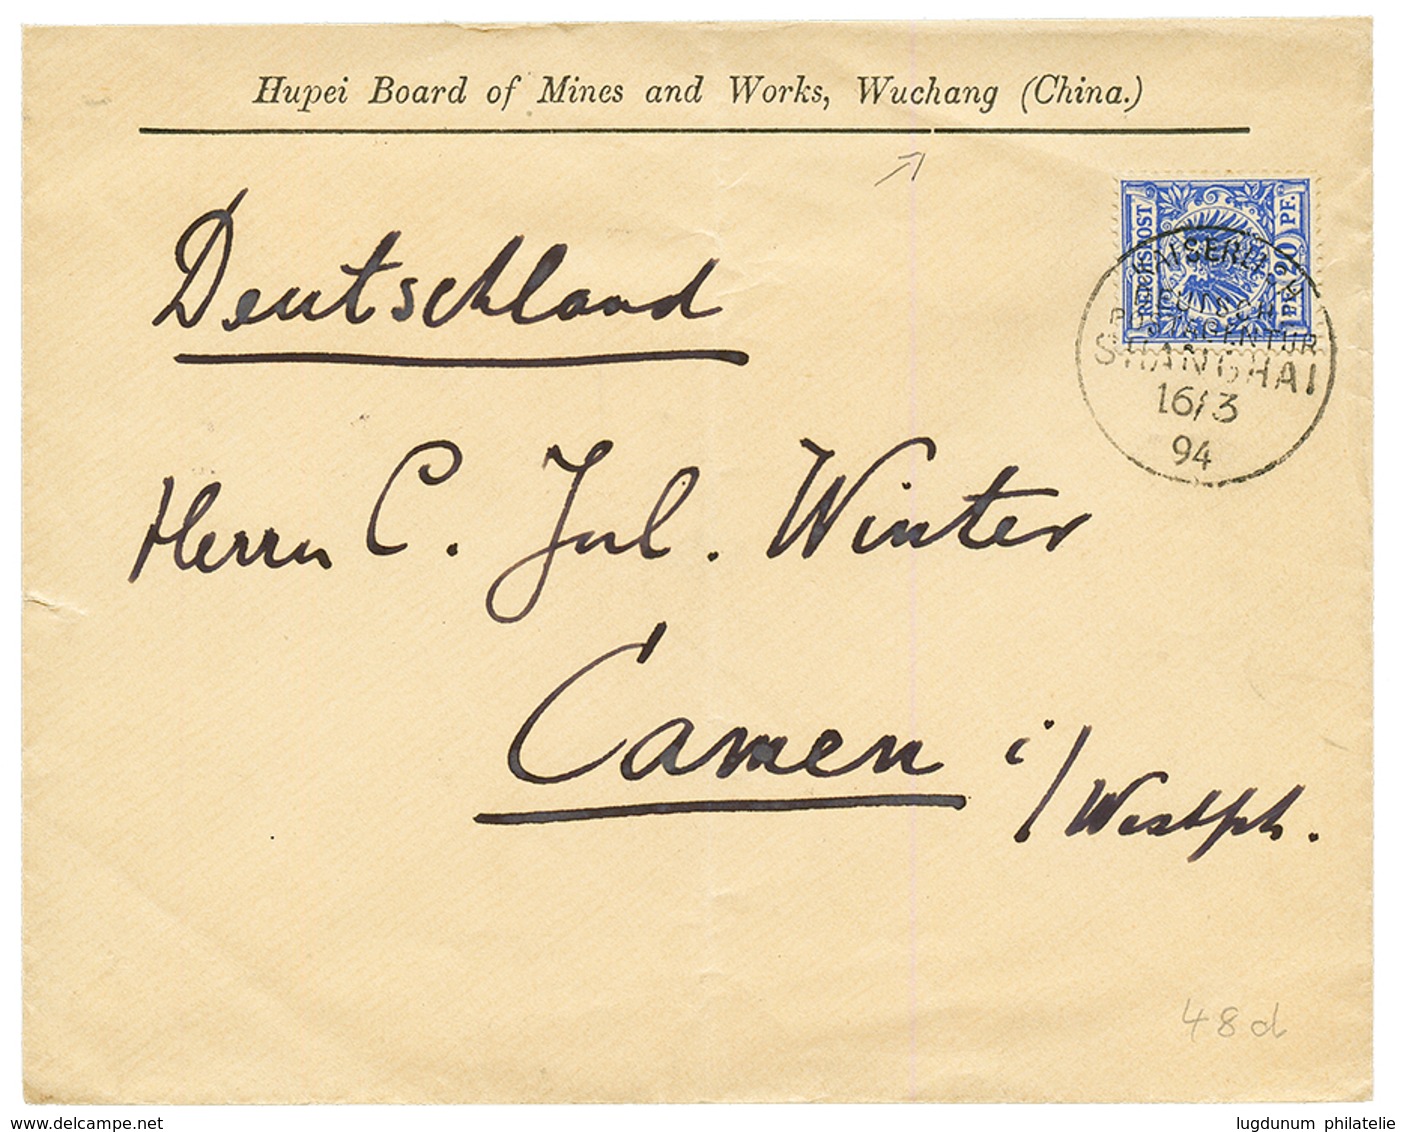 Hupei Board of Mines and Works, Wuchang (China.)
Deutschland
REICHSPOST
20 PF.
KAISERLICH
DEUTSCHE
POSTAGENTUR
SHANGHAI
16/3
94
Herrn C. Jul. Winter
Camen i/Westph.
48d
www.delcampe.net
lugdunum philatelie